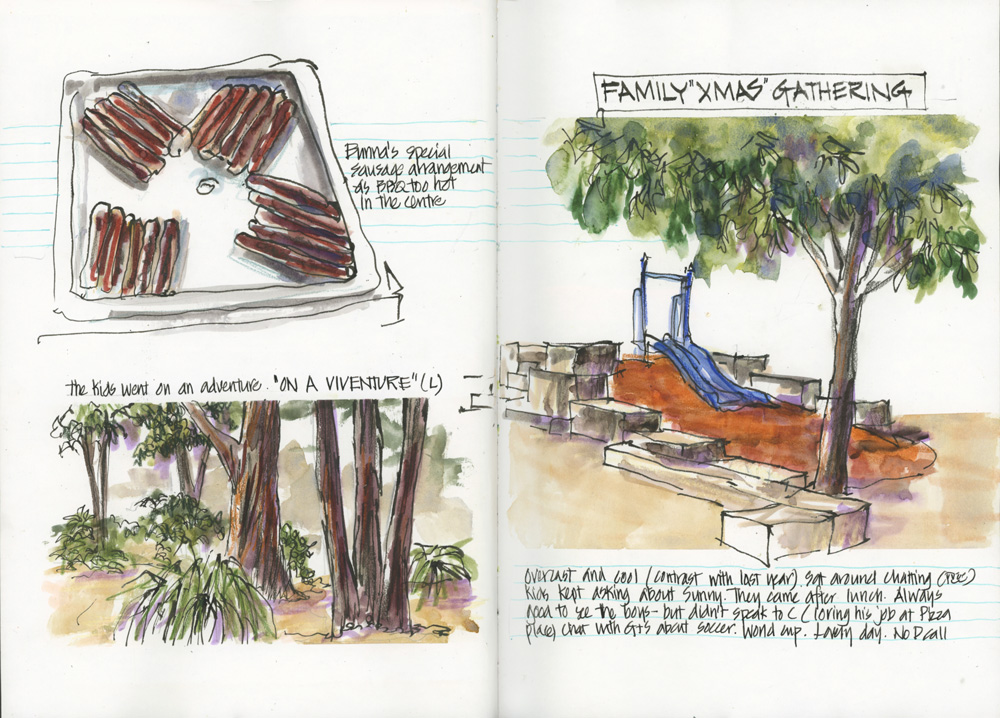 Emma's special
sausage arrangement
as BBQ too hot
in the centre
The kids went on an adventure. "ON A VIVENTURE" (L)
FAMILY "XMAS" GATHERING
Overcast and cool (contrast with last year). Sat around chatting
Kids kept asking about Sunny. They came after lunch. Always
good to see the boys - but didn't speak to C (loving his job at Pizza
place) Chat with G+S about soccer. World cup. Lovely day. No D call